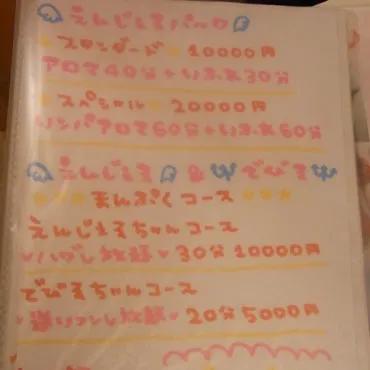 えんじぇるパック
スタンダード 10000円
アロマ40分+いふれ30分
スペシャル 20000円
リンパアロマ60分+いふれ60分
えんじぇる & でびる
まんぷくコース
えんじぇるちゃんコース
ハグし放題 30分 10000円
でびるちゃんコース
放題 20分 5000円